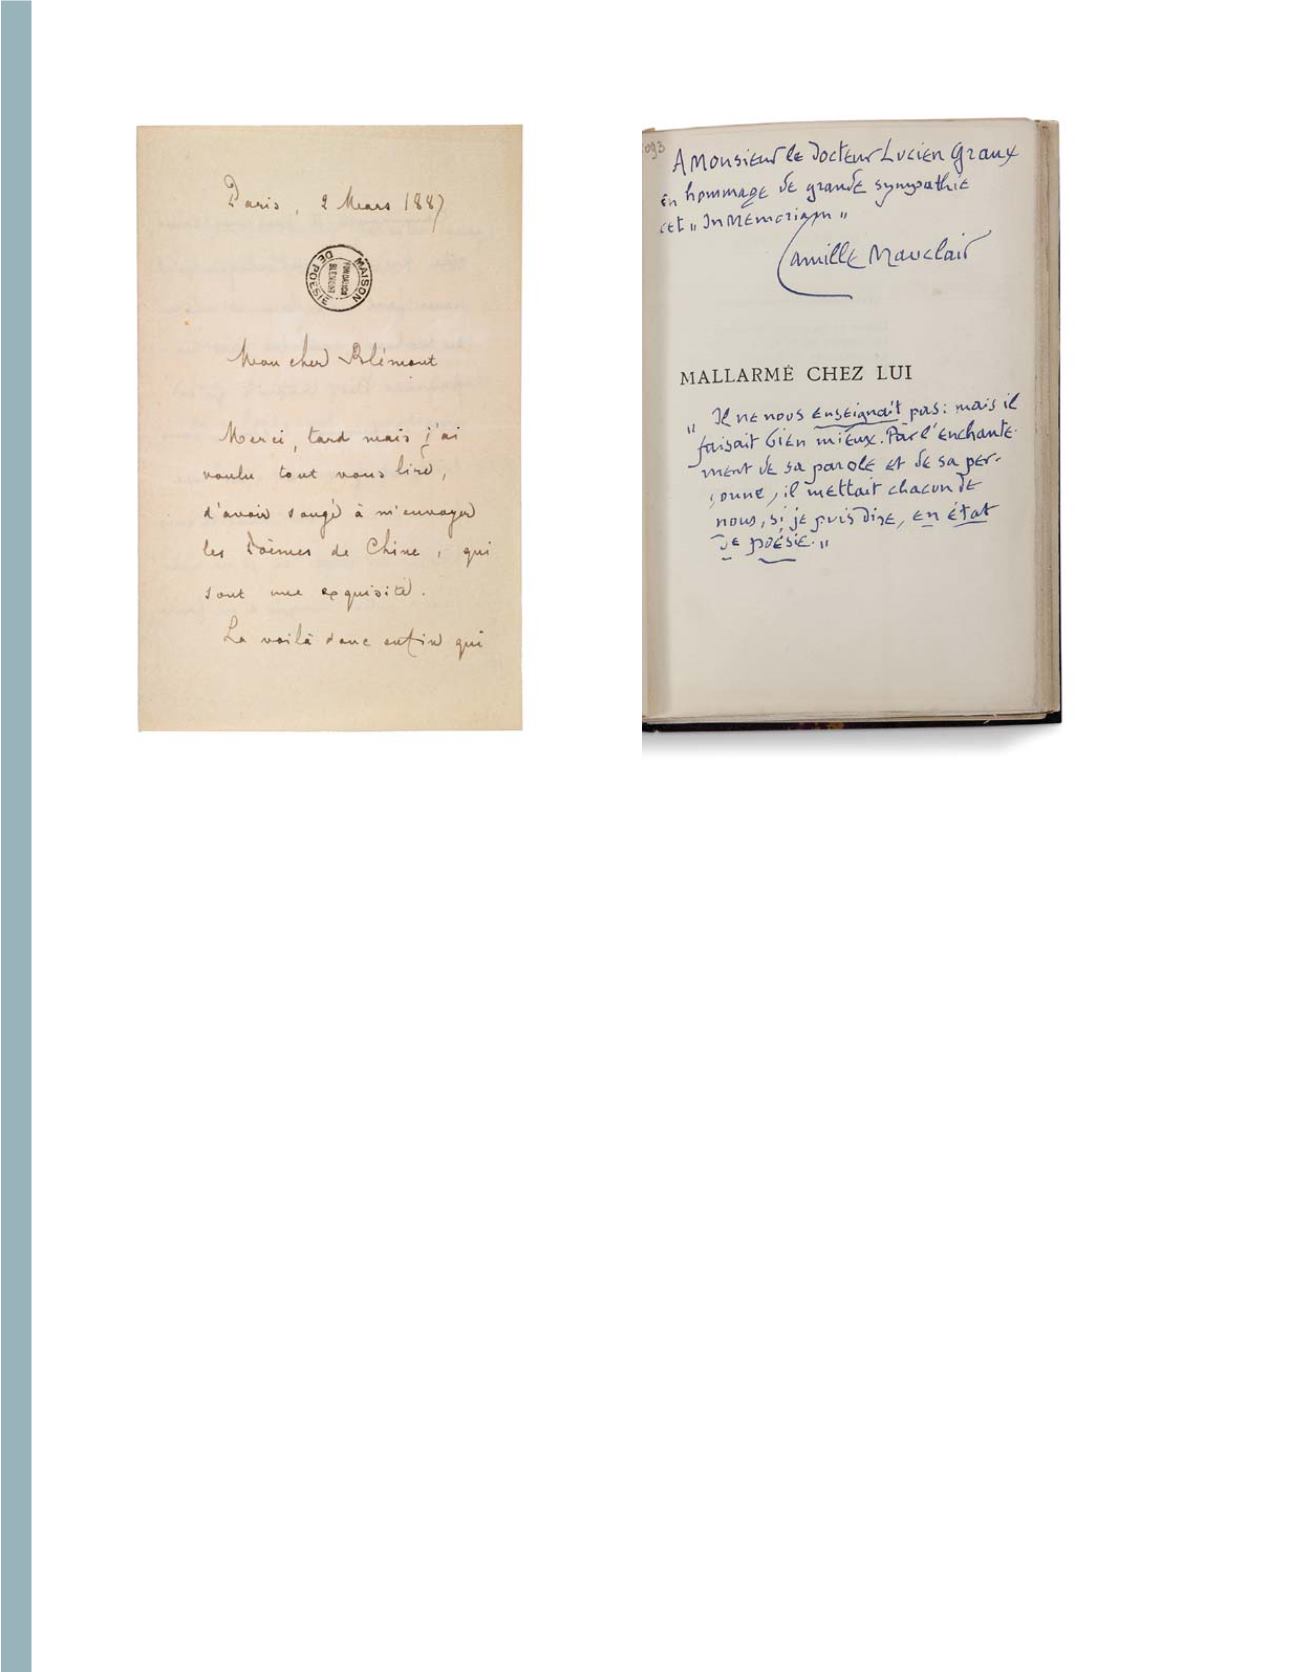 Paris, 2 Mars 1887
MAISON
DE POÉSIE
FONDATION
BLÉMONT
Mon cher Blémont
Merci, tard mais j'ai
voulu tout vous lire,
d'avoir songé à m'envoyer
les Poèmes de Chine, qui
sont une exquisité.
La voilà donc enfin qui
093
A Monsieur le Docteur Lucien Graux
en hommage de grande sympathie
cet "In Memoriam"
Camille Mauclair
MALLARMÉ CHEZ LUI
"Il ne nous enseignait pas: mais il
faisait bien mieux. Par l'enchante-
ment de sa parole et de sa per-
sonne, il mettait chacun de
nous, si je puis dire, en état
de poésie."